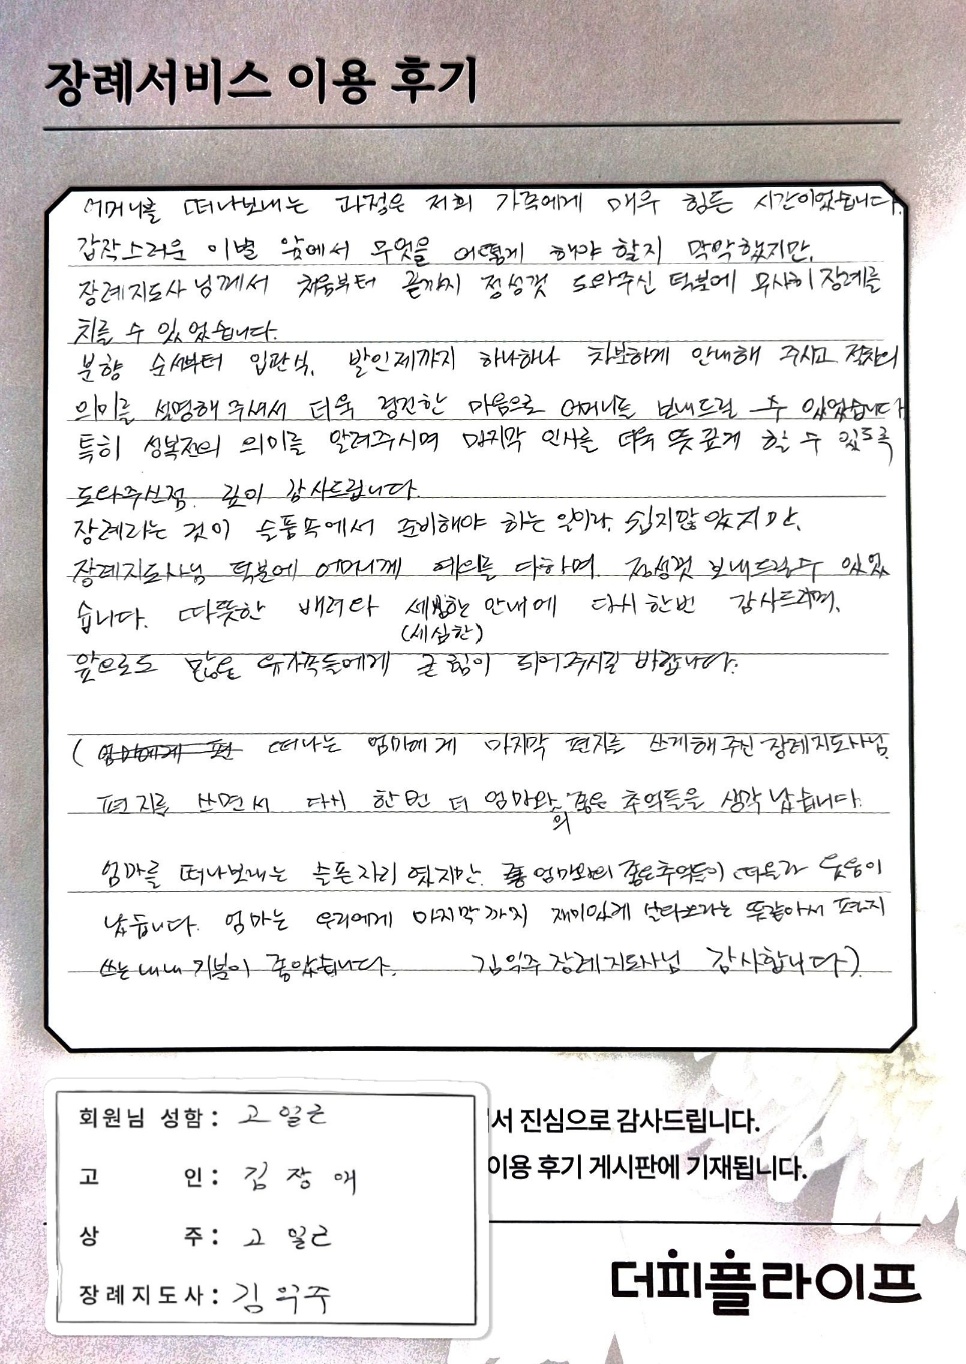 장례서비스 이용 후기
어머니를 떠나보내는 과정은 저희 가족에게 매우 힘든 시간이었습니다.
갑작스러운 이별 앞에서 무엇을 어떻게 해야 할지 막막했지만,
장례지도사님께서 처음부터 끝까지 정성껏 도와주신 덕분에 무사히 장례를
치를 수 있었습니다.
분향 순서부터 입관식, 발인제까지 하나하나 차분하게 안내해 주시고 절차의
의미를 설명해 주셔서 더욱 경건한 마음으로 어머니를 보내드릴 수 있었습니다
특히 성복전의 의미를 알려주시며 마지막 인사를 더욱 뜻깊게 할 수 있도록
도와주신점 깊이 감사드립니다.
장례라는 것이 슬픔속에서 준비해야 하는 일이라, 쉽지많았지만,
장례지도사님 덕분에 어머니께 예의를 다하며, 정성껏 보내드릴수 있었
습니다. 따뜻한 배려와 세심한 안내에 다시한번 감사드리며,
(세심한)
앞으로도 많은 유가족들에게 큰 힘이 되어주시길 바랍니다.
( 엄마에게 편 떠나는 엄마에게 마지막 편지를 쓰게해주신 장례지도사님.
편지를 쓰면서 다시 한번 더 엄마와의 좋은 추억들을 생각 났습니다.
엄마를 떠나보내는 슬픈자리 였지만, 엄마와의 좋은추억들이 떠올라 웃음이
났습니다. 엄마는 우리에게 마지막까지 재미있게 살다오라는 똑같아서 편지
쓰는내내 기분이 좋았습니다. 김익주 장례지도사님 감사합니다).
서 진심으로 감사드립니다.
이용 후기 게시판에 기재됩니다.
회원님 성함 : 고 일근
고 인 : 김 장 애
상 주 : 고 일근
장례지도사 : 김 익주
더피플라이프